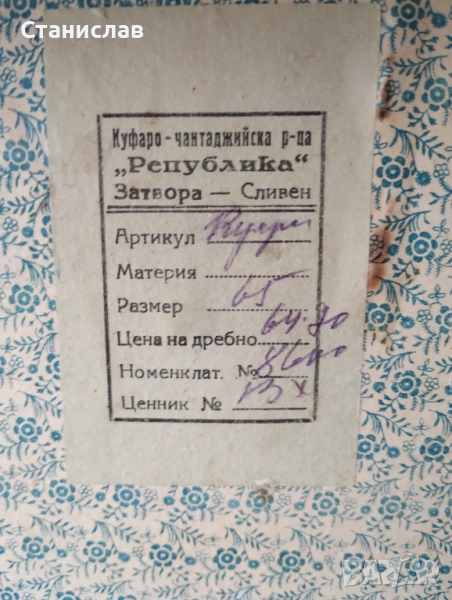 Станислав
Куфаро-чантаджийска р-ца
„Република“
Затвора — Сливен
Артикул Куфри
Материя
Размер 65
Цена на дребно 64.90
Номенклат. №
Ценник №
Bazar